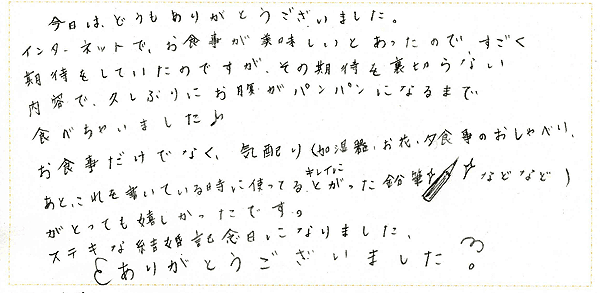 今日は、どうもありがとうございました。
インターネットで、お食事が美味しいとあったので、すごく
期待をしていたのですが、その期待を裏切らない
内容で、久しぶりにお腹がパンパンになるまで
食べちゃいました♪
お食事だけでなく、気配り(加湿器、お花、夕食事のおしゃべり、
あと、これを書いている時に使ってる、キレイにとがった鉛筆などなど)
がとっても嬉しかったです。
ステキな結婚記念日になりました、
ありがとうございました